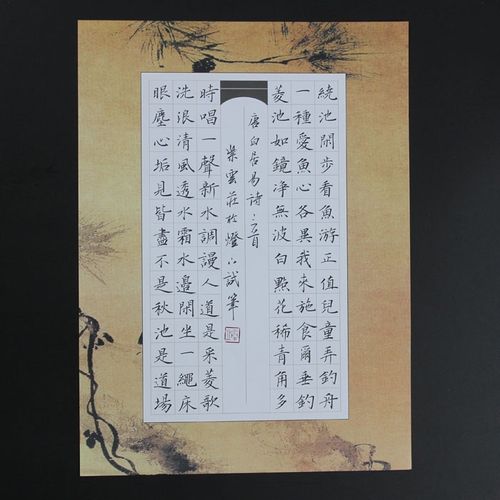 繞池閑步看魚游正值兒童弄釣舟
一種愛魚心各異我來施食爾垂釣
菱池如鏡淨無波白點花稀青角多
唐白居易詩三首
紫雲莊於燈下試筆
時唱一聲新水調謾人道是采菱歌
洗浪清風透水霜水邊閑坐一繩床
眼塵心垢見皆盡不是秋池是道場